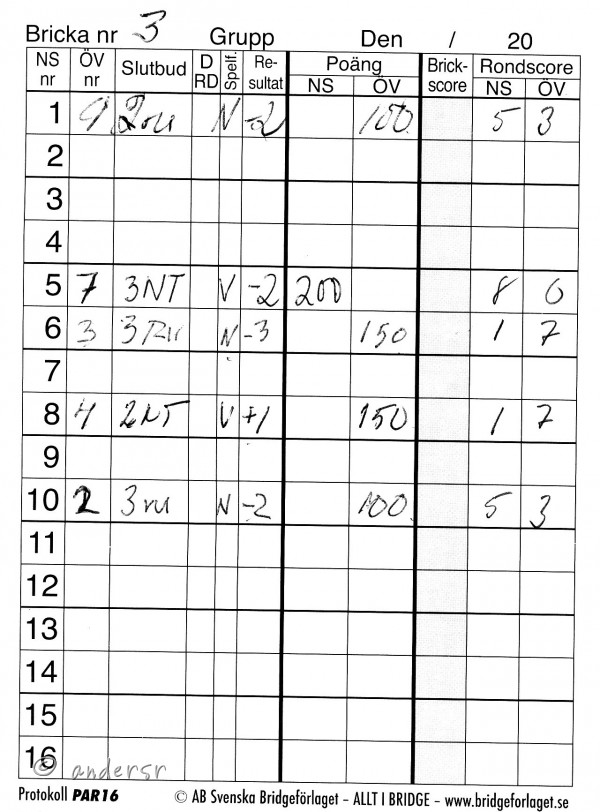 Bricka nr 3 Grupp Den / 20
NS nr ÖV nr Slutbud D RD Spelf. Re-sultat Poäng NS ÖV Brick-score Rondscore NS ÖV
1 9 2ru N -2 100 5 3
2
3
4
5 7 3NT V -2 200 8 0
6 3 3ru N -3 150 1 7
7
8 4 2NT V +1 150 1 7
9
10 2 3ru N -2 100 5 3
11
12
13
14
15
16
© andersr
Protokoll PAR16 © AB Svenska Bridgeförlaget – ALLT I BRIDGE – www.bridgeforlaget.se